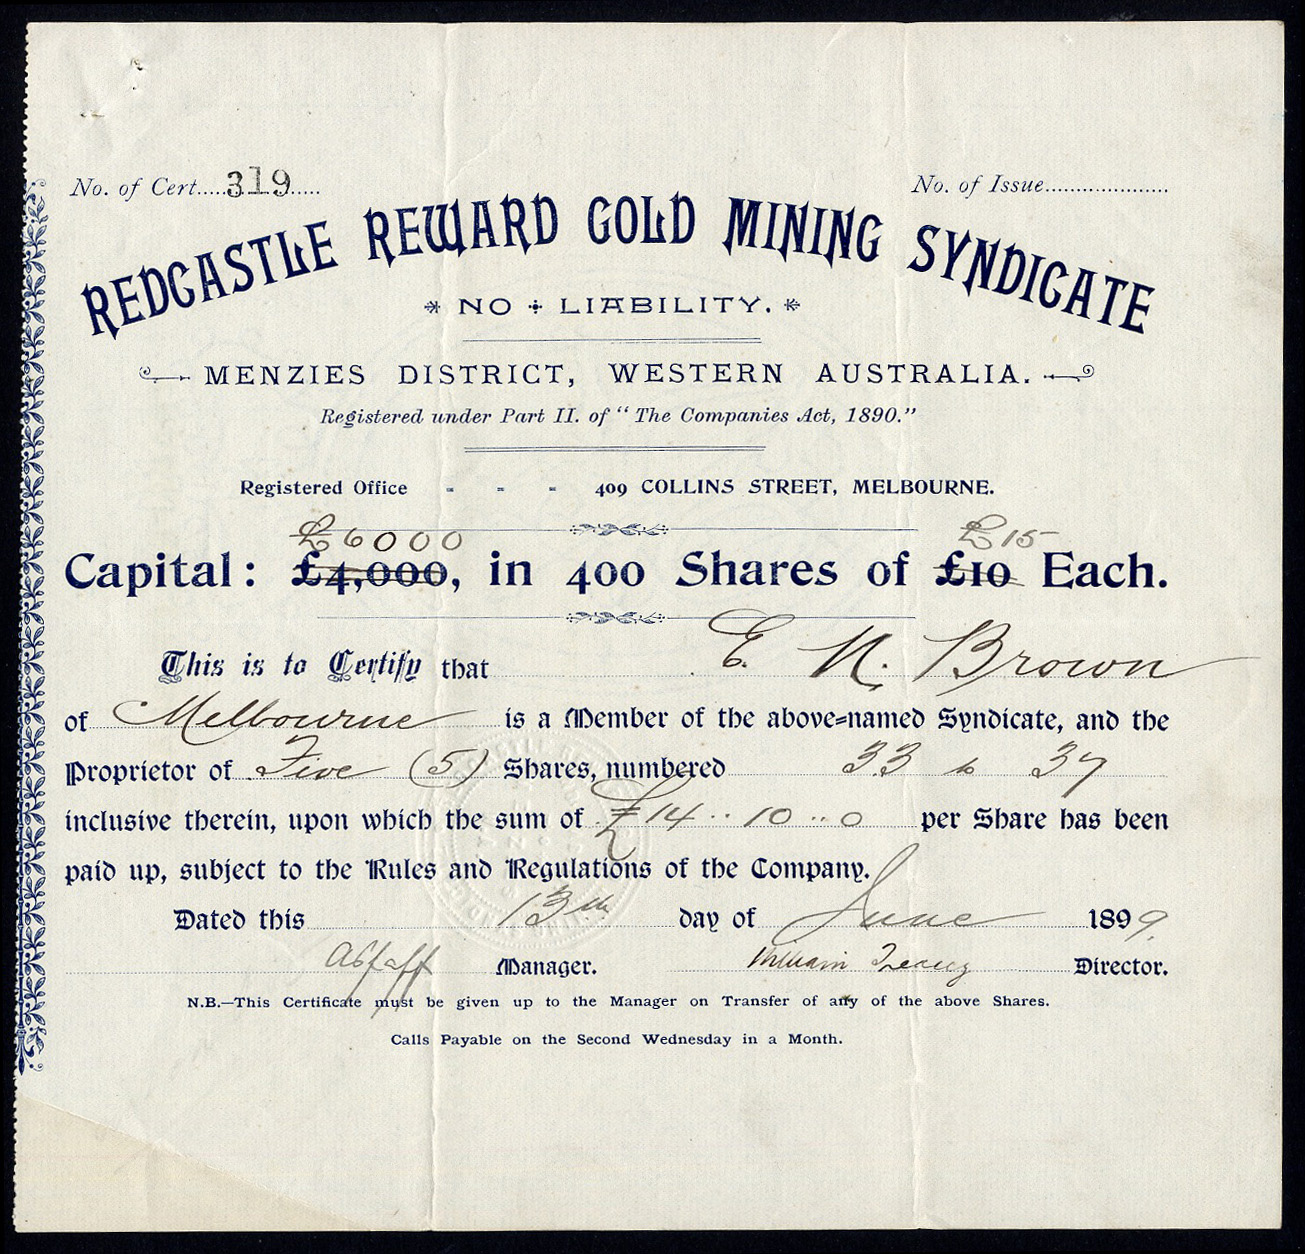 No. of Cert.....319.....
No. of Issue.....................
REDCASTLE REWARD GOLD MINING SYNDICATE
NO LIABILITY.
MENZIES DISTRICT, WESTERN AUSTRALIA.
Registered under Part II. of "The Companies Act, 1890."
Registered Office - - - 409 COLLINS STREET, MELBOURNE.
£6000 £15
Capital: £4,000, in 400 Shares of £10 Each.
This is to Certify that E. N. Brown
of Melbourne is a Member of the above-named Syndicate, and the
Proprietor of Five (5) Shares, numbered 33 to 37
inclusive therein, upon which the sum of £14..10..0 per Share has been
paid up, subject to the Rules and Regulations of the Company.
Dated this 13th day of June 1899.
Manager. William Director.
N.B.—This Certificate must be given up to the Manager on Transfer of any of the above Shares.
Calls Payable on the Second Wednesday in a Month.